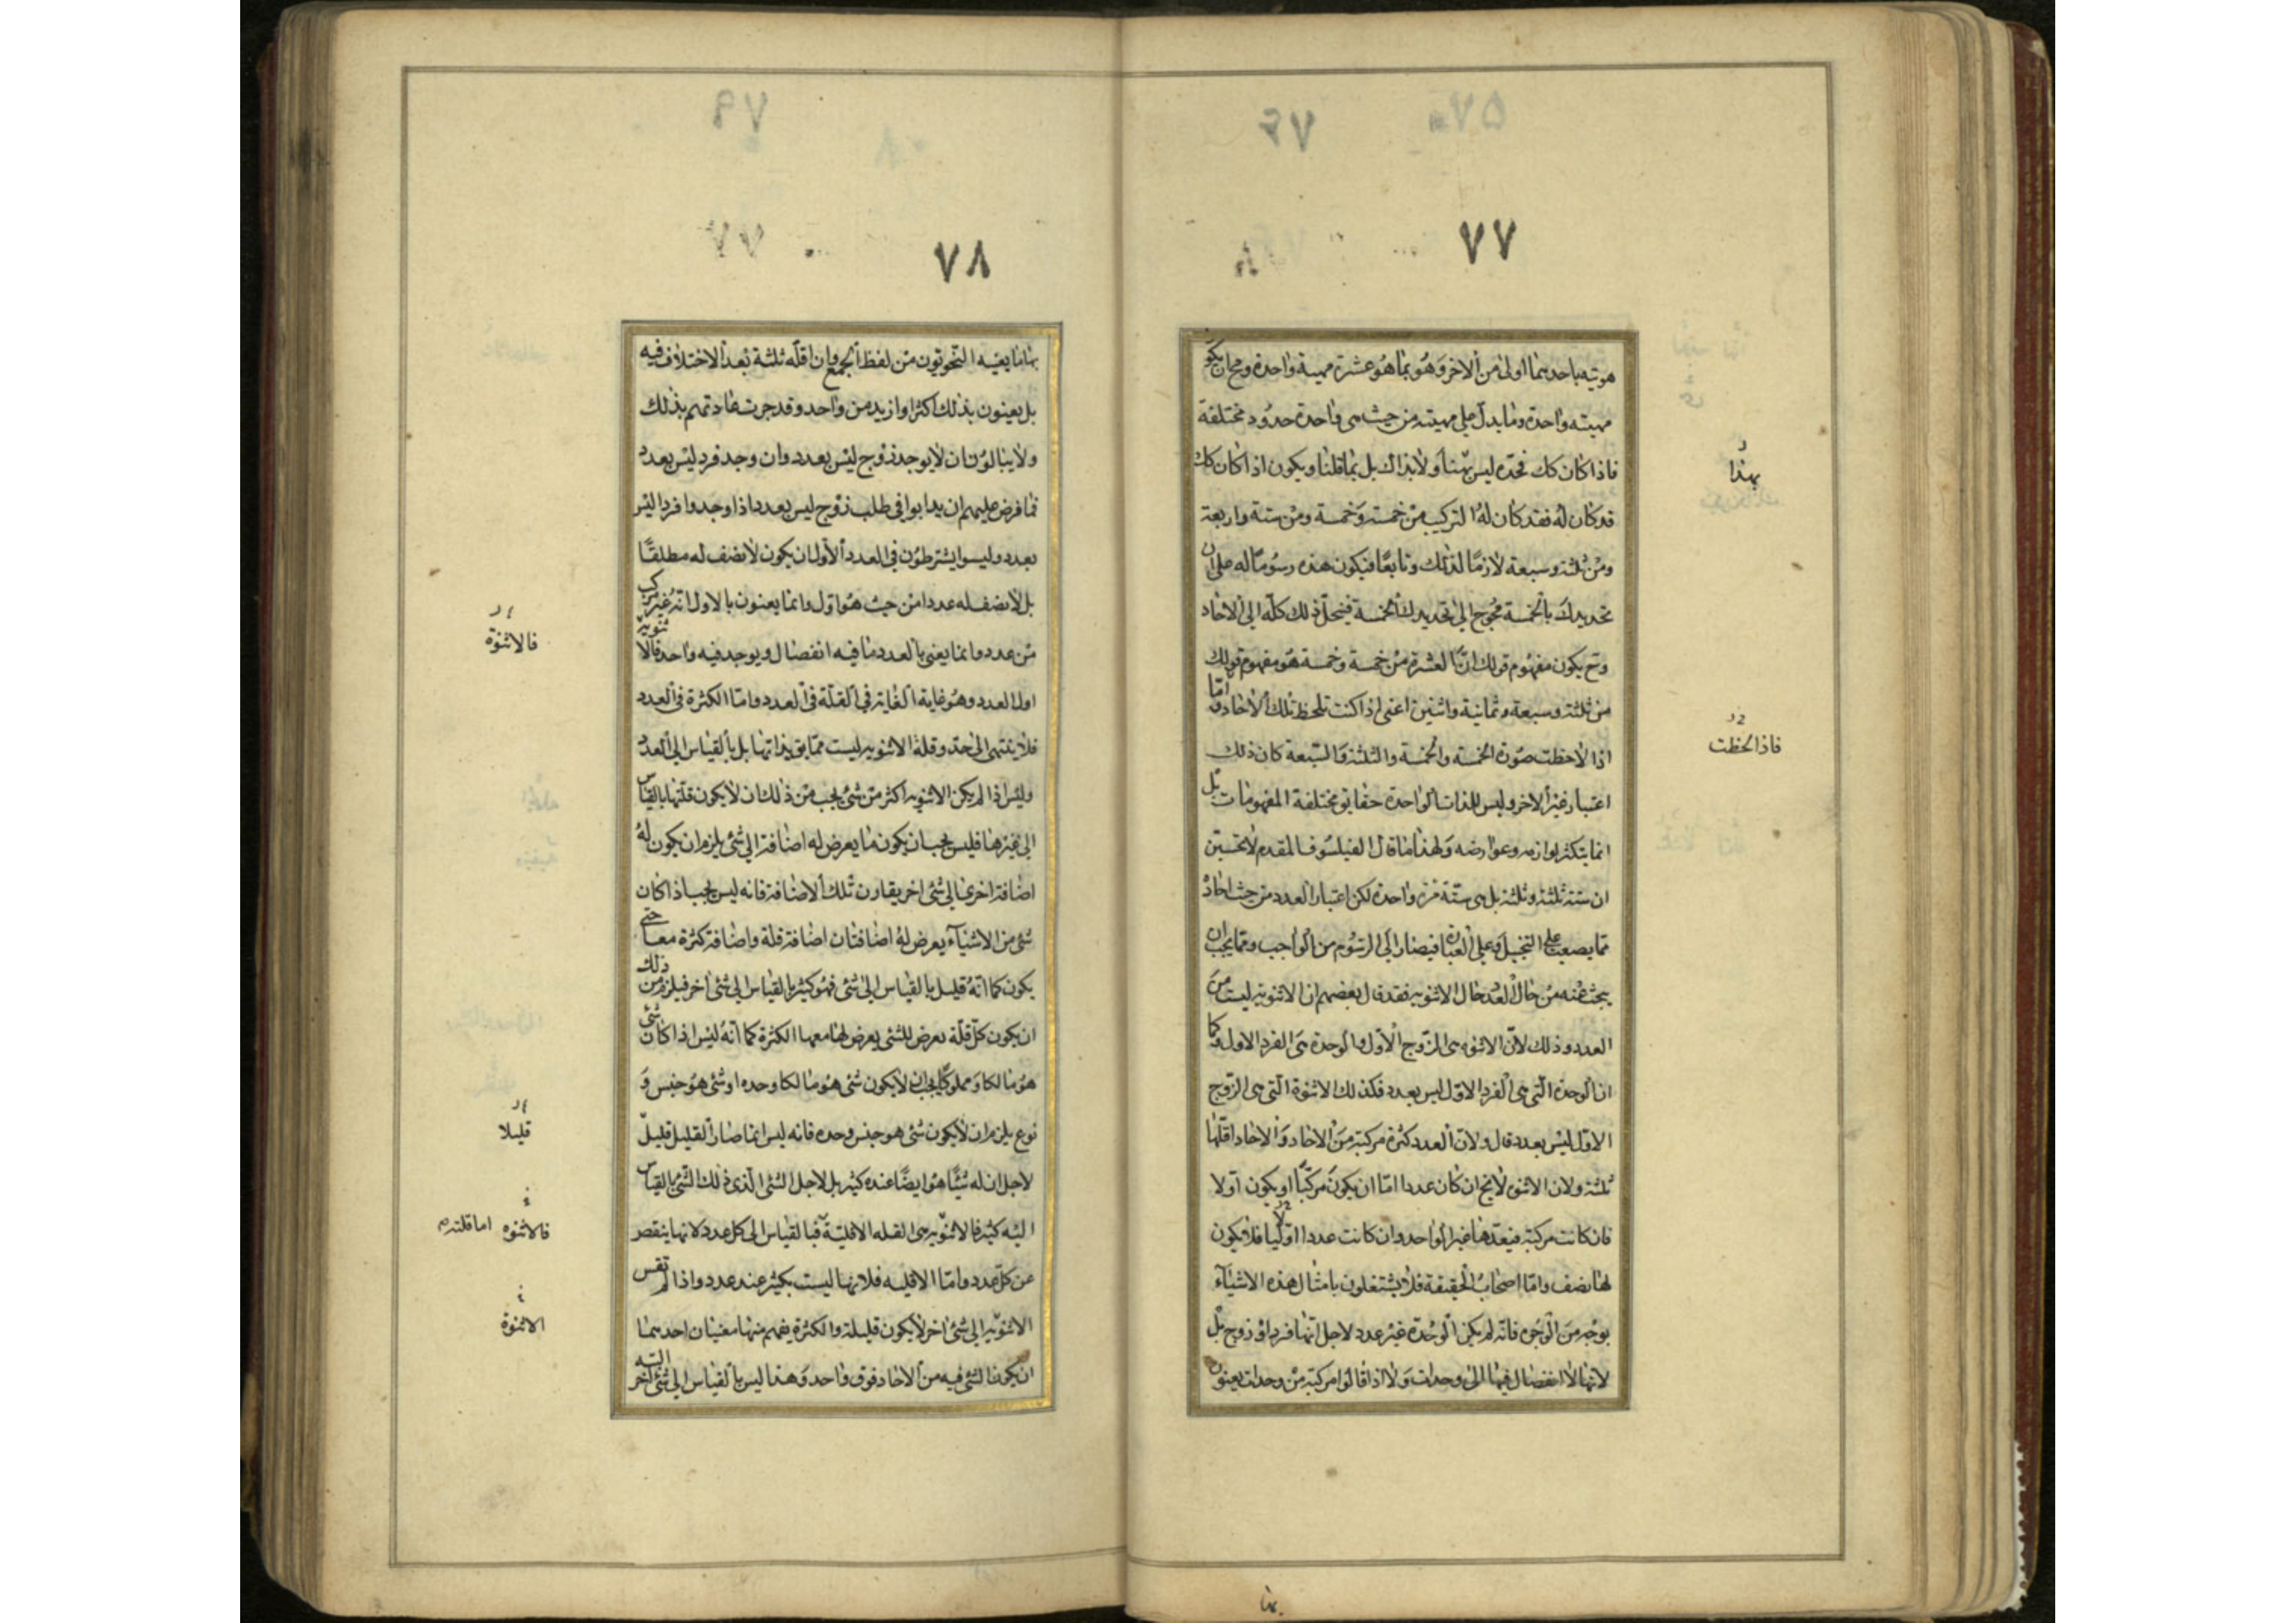 ٧٧
هويته باحدهما اولى من الاخر وهو بما هو عشرة مهية واحدة ومح ان يكون
مهيته واحدة وما يدل على مهيته من حيث هى واحدة حدود مختلفة
فاذا كان كك فحده ليس بهذا ولا بذاك بل بما قلنا ويكون اذا كان كك
قد كان له فقد كان له التركيب من خمسة وخمسة ومن ستة واربعة
ومن ثلثة وسبعة لازما لذلك وتابعا فيكون هذه رسوما له على ان
تحديدك بالخمسة محوج الى تحديدك الخمسة فينحل ذلك كله الى الاحاد
وح يكون مفهوم قولك ان العشرة من خمسة وخمسة هو مفهوم قولك
من ثلثة وسبعة وثمانية واثنين اعنى اذا كنت تلحظ تلك الاحاد واما
اذا لاحظت صورة الخمسة والخمسة والثلثة والسبعة كان ذلك
اعتبار غير الاخر وليس للذات الواحدة حقايق مختلفة المفهومات بل
انما يتكثر لوازمه وعوارضه ولهذا ما قال الفيلسوف المقدم لا تحسبن
ان ستة ثلثة وثلثة بل هى ستة مرة واحدة لكن اعتبار العدد من حيث احاده
مما يصعب على التخيل وعلى العبارة فيصار الى الرسوم من الواجب ومما يجب ان
يبحث عنه من حال العدد حال الاثنوية فقد قال بعضهم ان الاثنوية ليست من
العدد وذلك لان الاثنوه هى الزوج الاول والوحدة هى الفرد الاول وكما
ان الوحدة التى هى الفرد الاول ليس بعدد فكذلك الاثنوة التى هى الزوج
الاول ليس بعدد قال ولان العدد كثرة مركبة من الاحاد والاحاد اقلها
ثلثة ولان الاثنوه لا يخ ان كان عددا اما ان يكون مركبا او يكون اولا
فان كانت مركبة فيعدها غير الواحد وان كانت عددا اوليا فلا يكون
لها نصف واما اصحاب الحقيقة فلا يشتغلون بامثال هذه الاشيآء
بوجه من الوجوه فانه لم يكن الوحدة غير عدد لاجل انها فرد او زوج بل
لانها لا انفصال فيها الى وحدات ولا اذا قالوا مركبة من وحدات يعنون
بهذا
فاذا لحظت
بها
٧٨
بها ما يعنيه النحويون من لفظ الجمع وان اقله ثلثة بعد الاختلاف فيه
بل يعنون بذلك اكثر او ازيد من واحد وقد جرت عادتهم بذلك
ولا يبالون ان لا يوجد زوج ليس بعدد وان وجد فرد ليس بعدد
فما فرض عليهم ان يدابوا فى طلب زوج ليس بعدد اذا وجدوا فردا ليس
بعدد وليسوا يشترطون فى العدد الاول ان يكون لا نصف له مطلقا
بل لا نصف له عددا من حيث هو اول وانما يعنون بالاول انه غير مركب
من عدد وانما يعنى بالعدد ما فيه انفصال ويوجد فيه واحد فالاثنوية
اول العدد وهو غاية الغاية فى القلة فى العدد واما الكثرة فى العدد
فلا ينتهى الى حد وقلة الاثنويه ليست مما يق بذاتها بل بالقياس الى العدد
وليس اذا لم يكن الاثنويه اكثر من شئ يجب من ذلك ان لا يكون قلتها بالقياس
الى غيرها فليس يجب ان يكون ما يعرض له اضافة الى شئ يلزم ان يكون له
اضافة اخرى الى شئ اخر يقارن تلك الاضافة فانه ليس يجب اذا كان
شئ من الاشيآء يعرض له اضافتان اضافة قلة واضافة كثرة معا حتى
يكون كما انه قليل بالقياس الى شئ فهو كثير بالقياس الى شئ اخر فيلزم من ذلك
ان يكون كل قلة تعرض للشئ يعرض لها معها الكثرة كما انه ليس اذا كان شئ
هو مالكا ومملوكا يجب ان لا يكون شئ هو مالكا وحده او شئ هو جنس و
نوع يلزم ان لا يكون شئ هو جنس وحده فانه ليس انما صار القليل قليل
لاجل ان له شيئا هو ايضا عنده كثير بل لاجل الشئ الذى ذلك الشئ بالقياس
اليه كثير فالاثنويه هى القله الاقلية فبالقياس الى كل عدد لانها ينقص
عن كل عدد واما الاقليه فلانها ليست بكثير عند عدد واذا لم تقس
الاثنويه الى شئ اخر لا يكون قليلة والكثرة يفهم منها معنيان احدهما
ان يكون الشئ فيه من الاحاد فوق واحد وهذا ليس بالقياس الى شئ اخر البته
فالاثنوة
قليلا
فالاثنوه اما قلته
الاثنوة